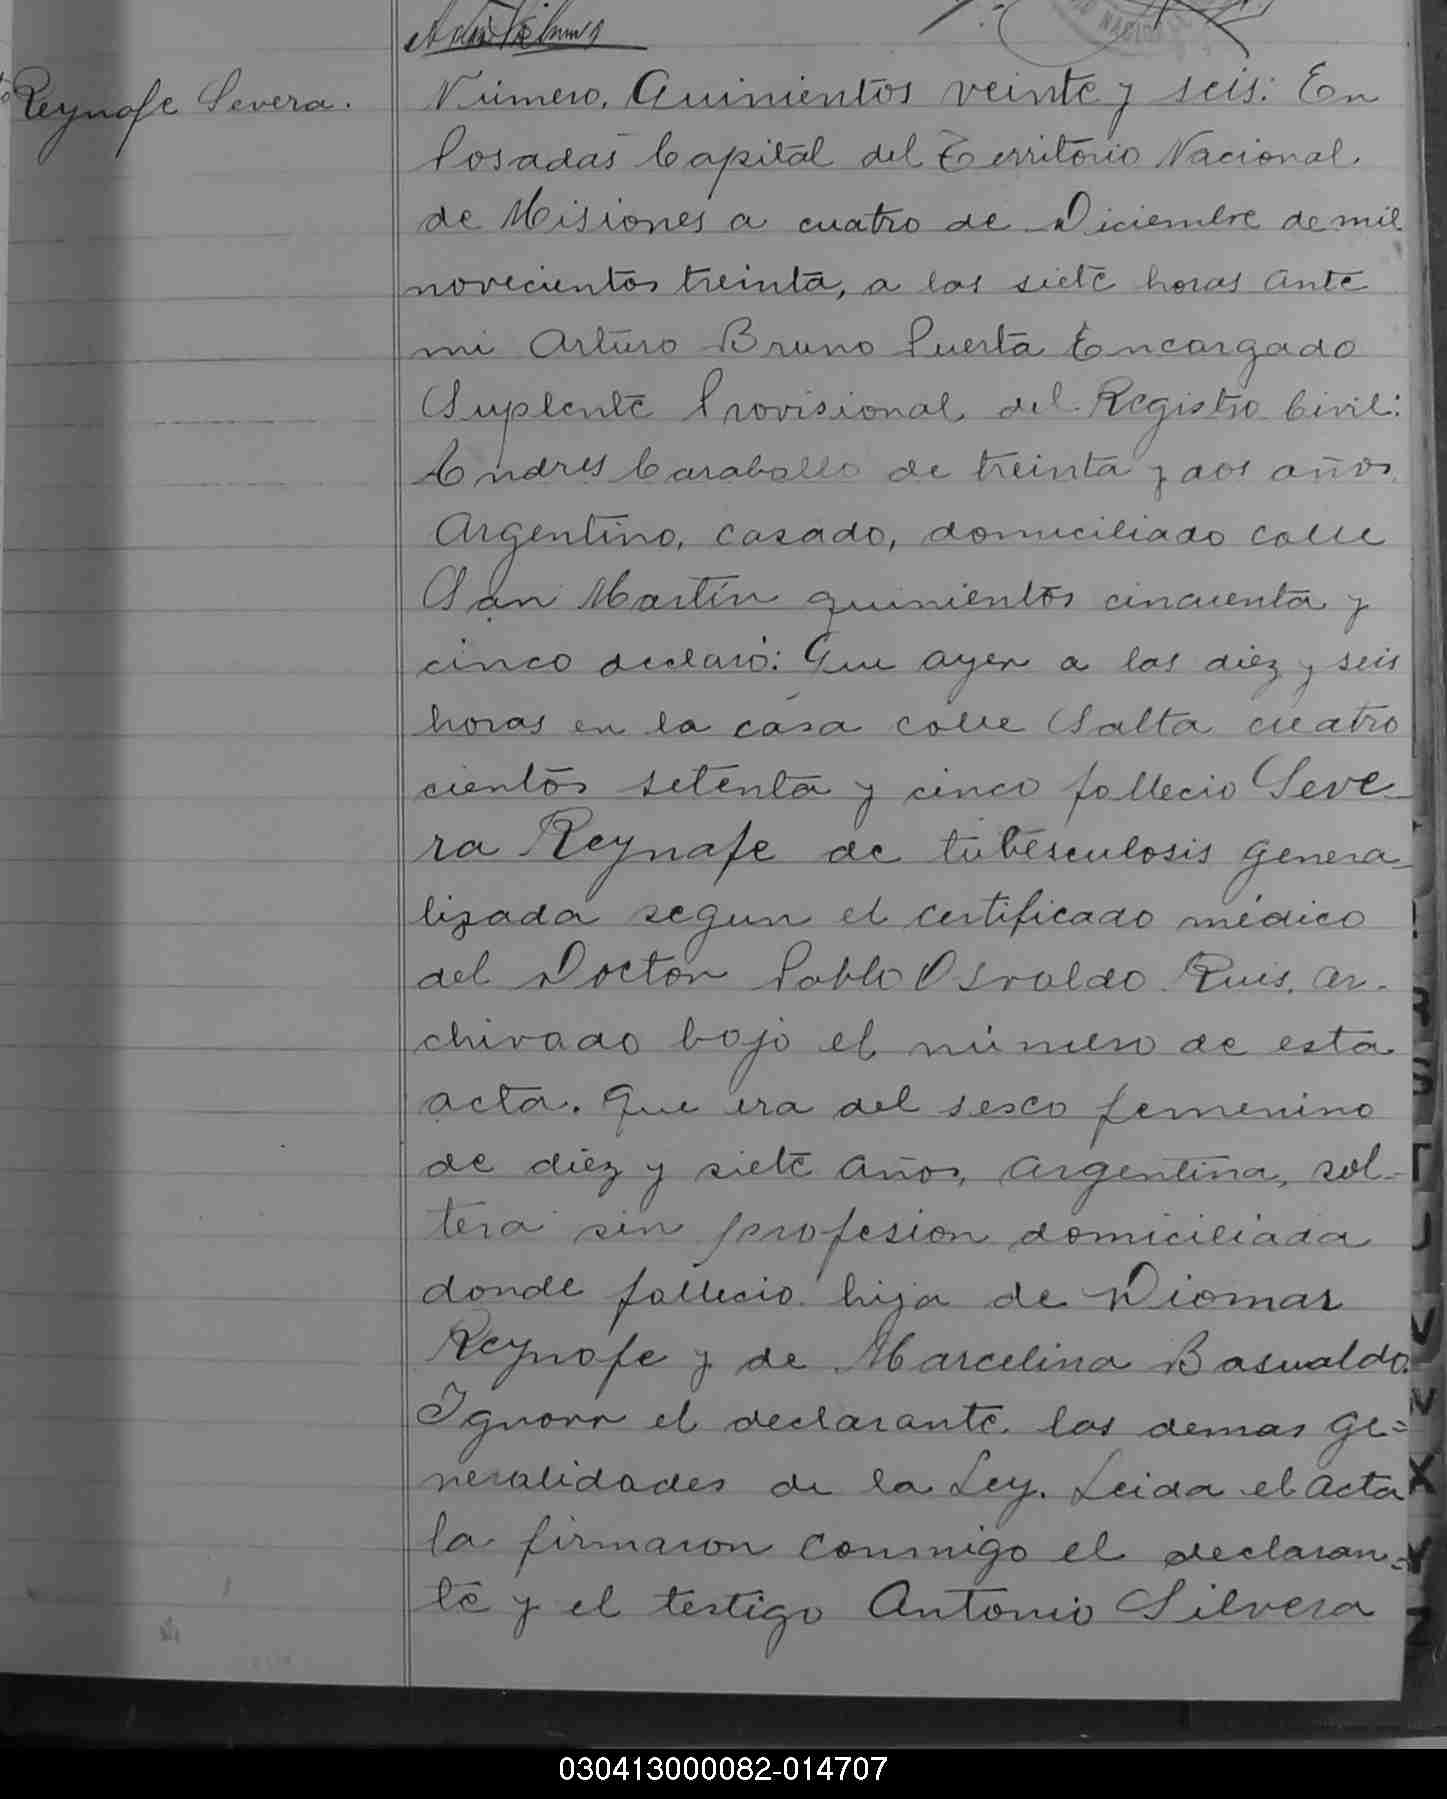 Reynafe Severa.
Número, Quinientos veinte y seis: En
Posadas Capital del Territorio Nacional
de Misiones a cuatro de Diciembre de mil
novecientos treinta, a las siete horas ante
mi Arturo Bruno Puerta Encargado
Suplente Provisional del Registro Civil:
Andres Caraballo de treinta y dos años
Argentino, casado, domiciliado calle
San Martín quinientos cincuenta y
cinco declaró: Que ayer a las diez y seis
horas en la casa calle Salta cuatro
cientos setenta y cinco fallecio Seve-
ra Reynafe de tubesculosis genera
lizada segun el certificado médico
del Doctor Pablo Osvaldo Ruis. ar-
chivado bajo el número de esta
acta. Que era del sesco femenino
de diez y siete años, argentina, sol-
tera sin profesion domiciliada
donde fallecio hija de Diomar
Reynafe y de Marcelina Basualdo.
Ignora el declarante las demas ge=
neralidades de la Ley. Leida el acta
la firmaron conmigo el declaran=
te y el testigo Antonio Silvera
R
S
T
U
V
W
X
Y
Z
030413000082-014707